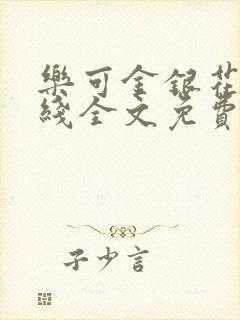 樂可金銀花
綫全文免費
子少言